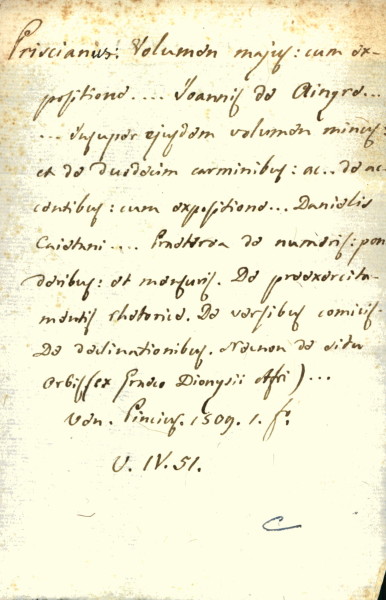 Priscianus. Volumen majus: cum ex-
positione .... Joannis de Aingre...
... Insuper ejusdem volumen minus:
et de duodecim carminibus: ac.. de ac
centibus: cum expositione... Danielis
Caietani .... Praeterea de numeris: pon
deribus: et mensuris. De praeexercita-
mentis rhetorice. De versibus comicis.
De declinationibus. Necnon de situ
orbis (ex Graeco Dionysii Afri) ...
Ven. Pincius. 1509. 1. fº.
V. IV. 51.
C